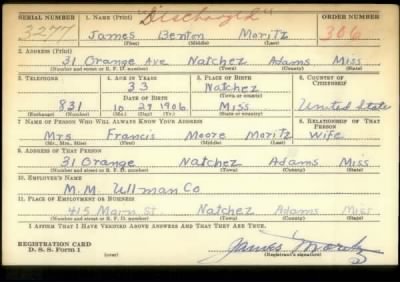 SERIAL NUMBER 1. NAME (Print) "Discharged" ORDER NUMBER
3277 James Benton Moritz 306
(First) (Middle) (Last)
2. ADDRESS (Print)
31 Orange Ave Natchez Adams Miss
(Number and street or R. F. D. number) (Town) (County) (State)
3. TELEPHONE 4. AGE IN YEARS 5. PLACE OF BIRTH 6. COUNTRY OF CITIZENSHIP
33 Natchez
DATE OF BIRTH (Town or county)
831 10 29 1906 Miss United State
(Exchange) (Number) (Mo.) (Day) (Yr.) (State or country)
7. NAME OF PERSON WHO WILL ALWAYS KNOW YOUR ADDRESS 8. RELATIONSHIP OF THAT PERSON
Mrs Francis Moore Moritz Wife
(Mr., Mrs., Miss) (First) (Middle) (Last)
9. ADDRESS OF THAT PERSON
31 Orange Natchez Adams Miss
(Number and street or R. F. D. number) (Town) (County) (State)
10. EMPLOYER'S NAME
M.M. Ullman Co
11. PLACE OF EMPLOYMENT OR BUSINESS
415 Main St. Natchez Adams Miss
(Number and street or R. F. D. number) (Town) (County) (State)
I AFFIRM THAT I HAVE VERIFIED ABOVE ANSWERS AND THAT THEY ARE TRUE.
REGISTRATION CARD
D. S. S. Form 1 (over) James Moritz
(Registrant's signature)